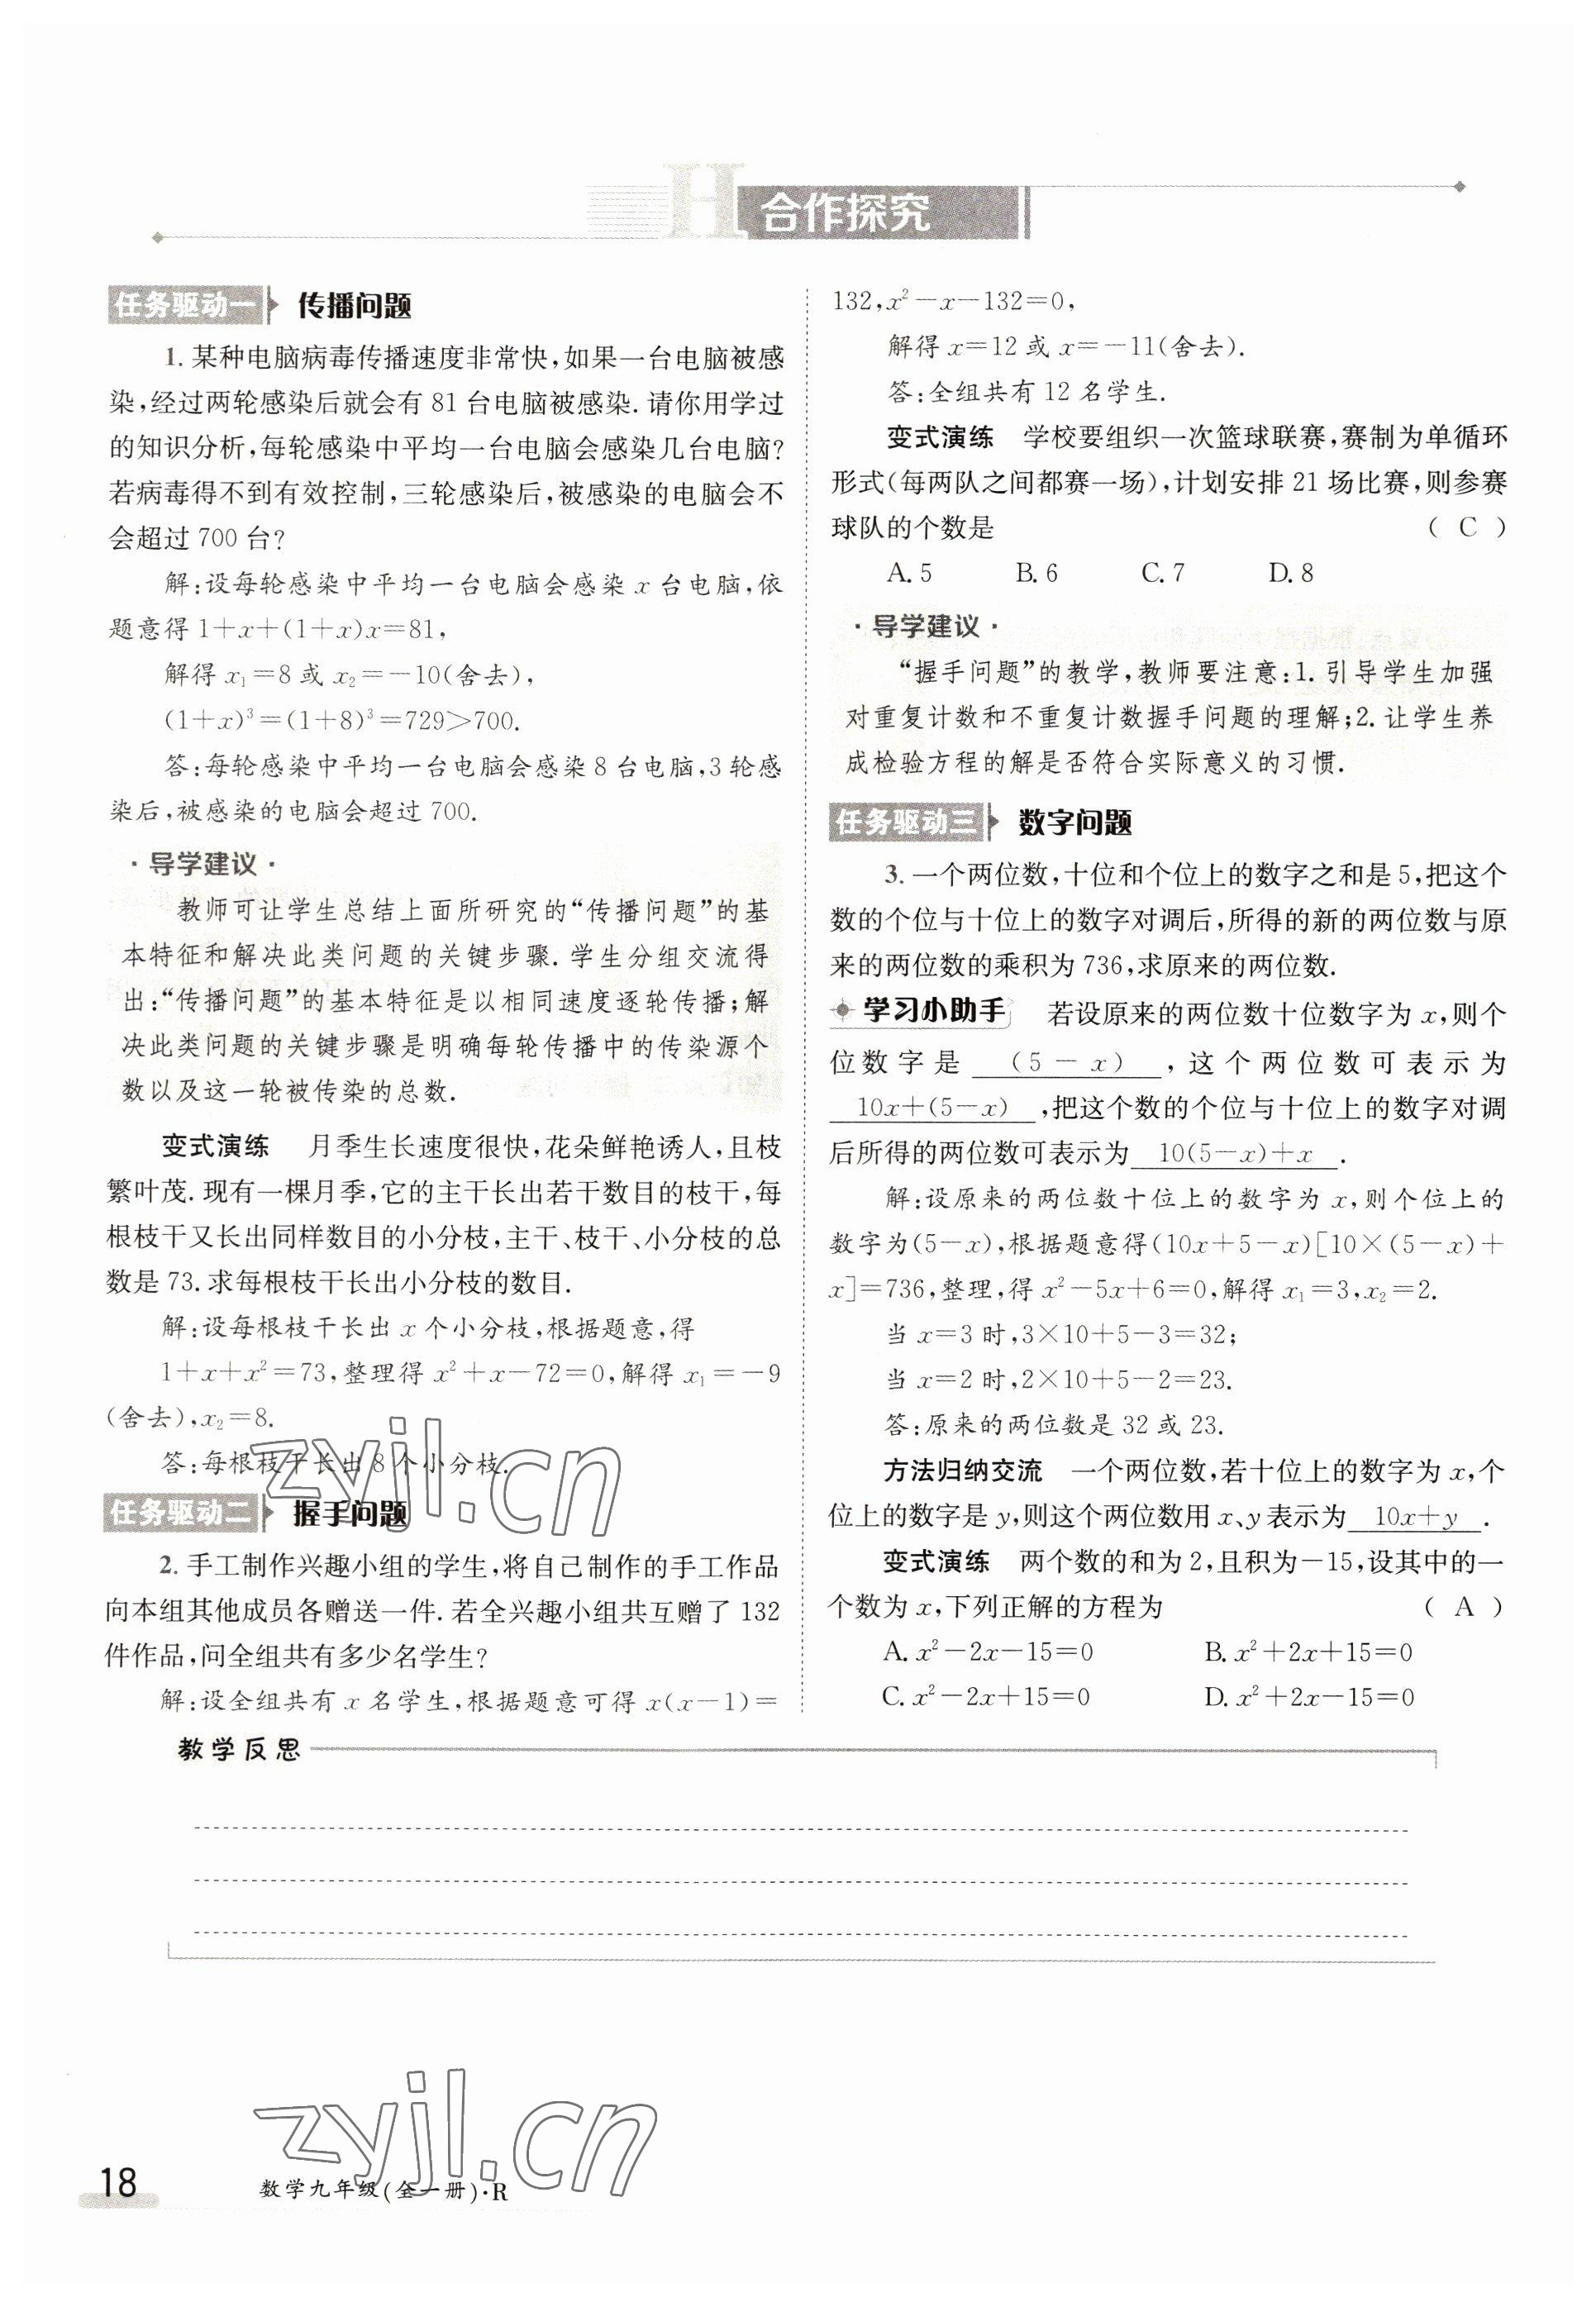 H 合作探究
任务驱动一 传播问题
1. 某种电脑病毒传播速度非常快,如果一台电脑被感
染,经过两轮感染后就会有 81 台电脑被感染. 请你用学过
的知识分析,每轮感染中平均一台电脑会感染几台电脑?
若病毒得不到有效控制,三轮感染后,被感染的电脑会不
会超过 700 台?
解:设每轮感染中平均一台电脑会感染 x 台电脑,依
题意得 1+x+(1+x)x=81,
解得 x₁=8 或 x₂=-10(舍去),
(1+x)³=(1+8)³=729>700.
答:每轮感染中平均一台电脑会感染 8 台电脑,3 轮感
染后,被感染的电脑会超过 700.
· 导学建议 ·
教师可让学生总结上面所研究的“传播问题”的基
本特征和解决此类问题的关键步骤. 学生分组交流得
出:“传播问题”的基本特征是以相同速度逐轮传播;解
决此类问题的关键步骤是明确每轮传播中的传染源个
数以及这一轮被传染的总数.
变式演练 月季生长速度很快,花朵鲜艳诱人,且枝
繁叶茂. 现有一棵月季,它的主干长出若干数目的枝干,每
根枝干又长出同样数目的小分枝,主干、枝干、小分枝的总
数是 73. 求每根枝干长出小分枝的数目.
解:设每根枝干长出 x 个小分枝,根据题意,得
1+x+x²=73,整理得 x²+x-72=0,解得 x₁=-9
(舍去),x₂=8.
答:每根枝干长出 8 个小分枝.
任务驱动二 握手问题
2. 手工制作兴趣小组的学生,将自己制作的手工作品
向本组其他成员各赠送一件. 若全兴趣小组共互赠了 132
件作品,问全组共有多少名学生?
解:设全组共有 x 名学生,根据题意可得 x(x-1)=
132,x²-x-132=0,
解得 x=12 或 x=-11(舍去).
答:全组共有 12 名学生.
变式演练 学校要组织一次篮球联赛,赛制为单循环
形式(每两队之间都赛一场),计划安排 21 场比赛,则参赛
球队的个数是 ( C )
A. 5 B. 6 C. 7 D. 8
· 导学建议 ·
“握手问题”的教学,教师要注意:1. 引导学生加强
对重复计数和不重复计数握手问题的理解;2. 让学生养
成检验方程的解是否符合实际意义的习惯.
任务驱动三 数字问题
3. 一个两位数,十位和个位上的数字之和是 5,把这个
数的个位与十位上的数字对调后,所得的新的两位数与原
来的两位数的乘积为 736,求原来的两位数.
学习小助手 若设原来的两位数十位数字为 x,则个
位数字是 (5-x) ,这个两位数可表示为
10x+(5-x) ,把这个数的个位与十位上的数字对调
后所得的两位数可表示为 10(5-x)+x .
解:设原来的两位数十位上的数字为 x,则个位上的
数字为(5-x),根据题意得(10x+5-x)[10×(5-x)+
x]=736,整理,得 x²-5x+6=0,解得 x₁=3,x₂=2.
当 x=3 时,3×10+5-3=32;
当 x=2 时,2×10+5-2=23.
答:原来的两位数是 32 或 23.
方法归纳交流 一个两位数,若十位上的数字为 x,个
位上的数字是 y,则这个两位数用 x、y 表示为 10x+y .
变式演练 两个数的和为 2,且积为-15,设其中的一
个数为 x,下列正解的方程为 ( A )
A. x²-2x-15=0 B. x²+2x+15=0
C. x²-2x+15=0 D. x²+2x-15=0
zyjl.cn
教学反思
zyjl.cn
18
数学九年级(全一册)·R